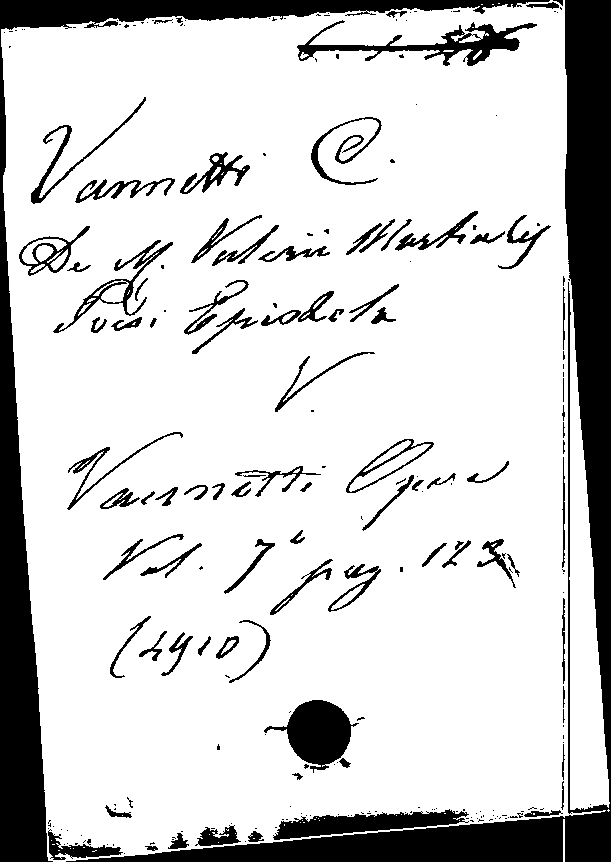 Vannetti C.
De M. Valerii Martialis
Poesi Epistola
V.
Vannetti Opere
Vol. 7° pag. 123
(4910)